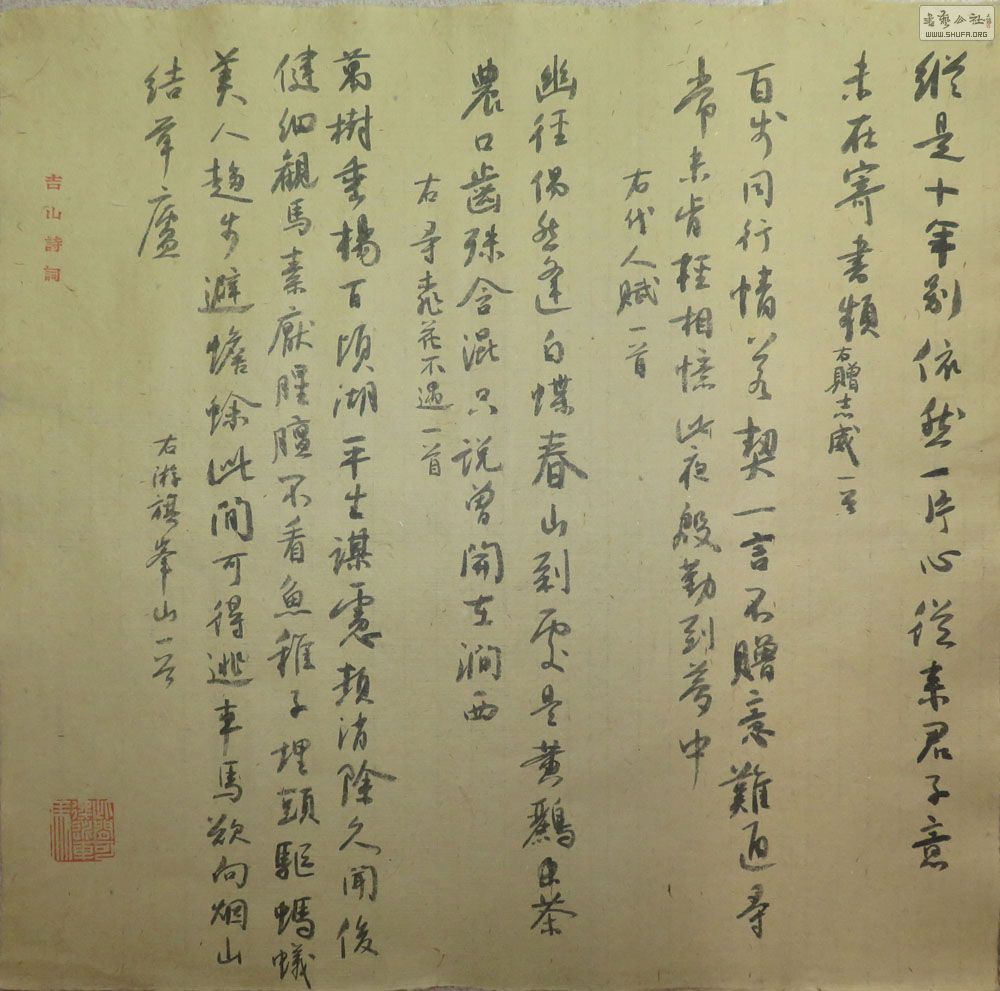 縱是十年別依然一片心從来君子意
未在寄書頻 右贈志威一首
百步同行情若契一言不贈意難通尋
常未肯輕相憶此夜殷勤到夢中
右代人賦一首
幽徑偶然逢白蝶春山到處是黄鸝日茶
農口齒殊含混只說曾開在澗西
右尋桃花不遇一首
萬樹垂楊百頃湖平生謀慮頓消除久聞俊
健細觀馬素厭腥膻不看魚稚子埋頭驅螞蟻
美人趋步避蟾蜍此間可得逃車馬欲向烟山
結草廬
右游旗峯山一首
吉山詩詞
書藝公社
WWW.SHUFA.ORG